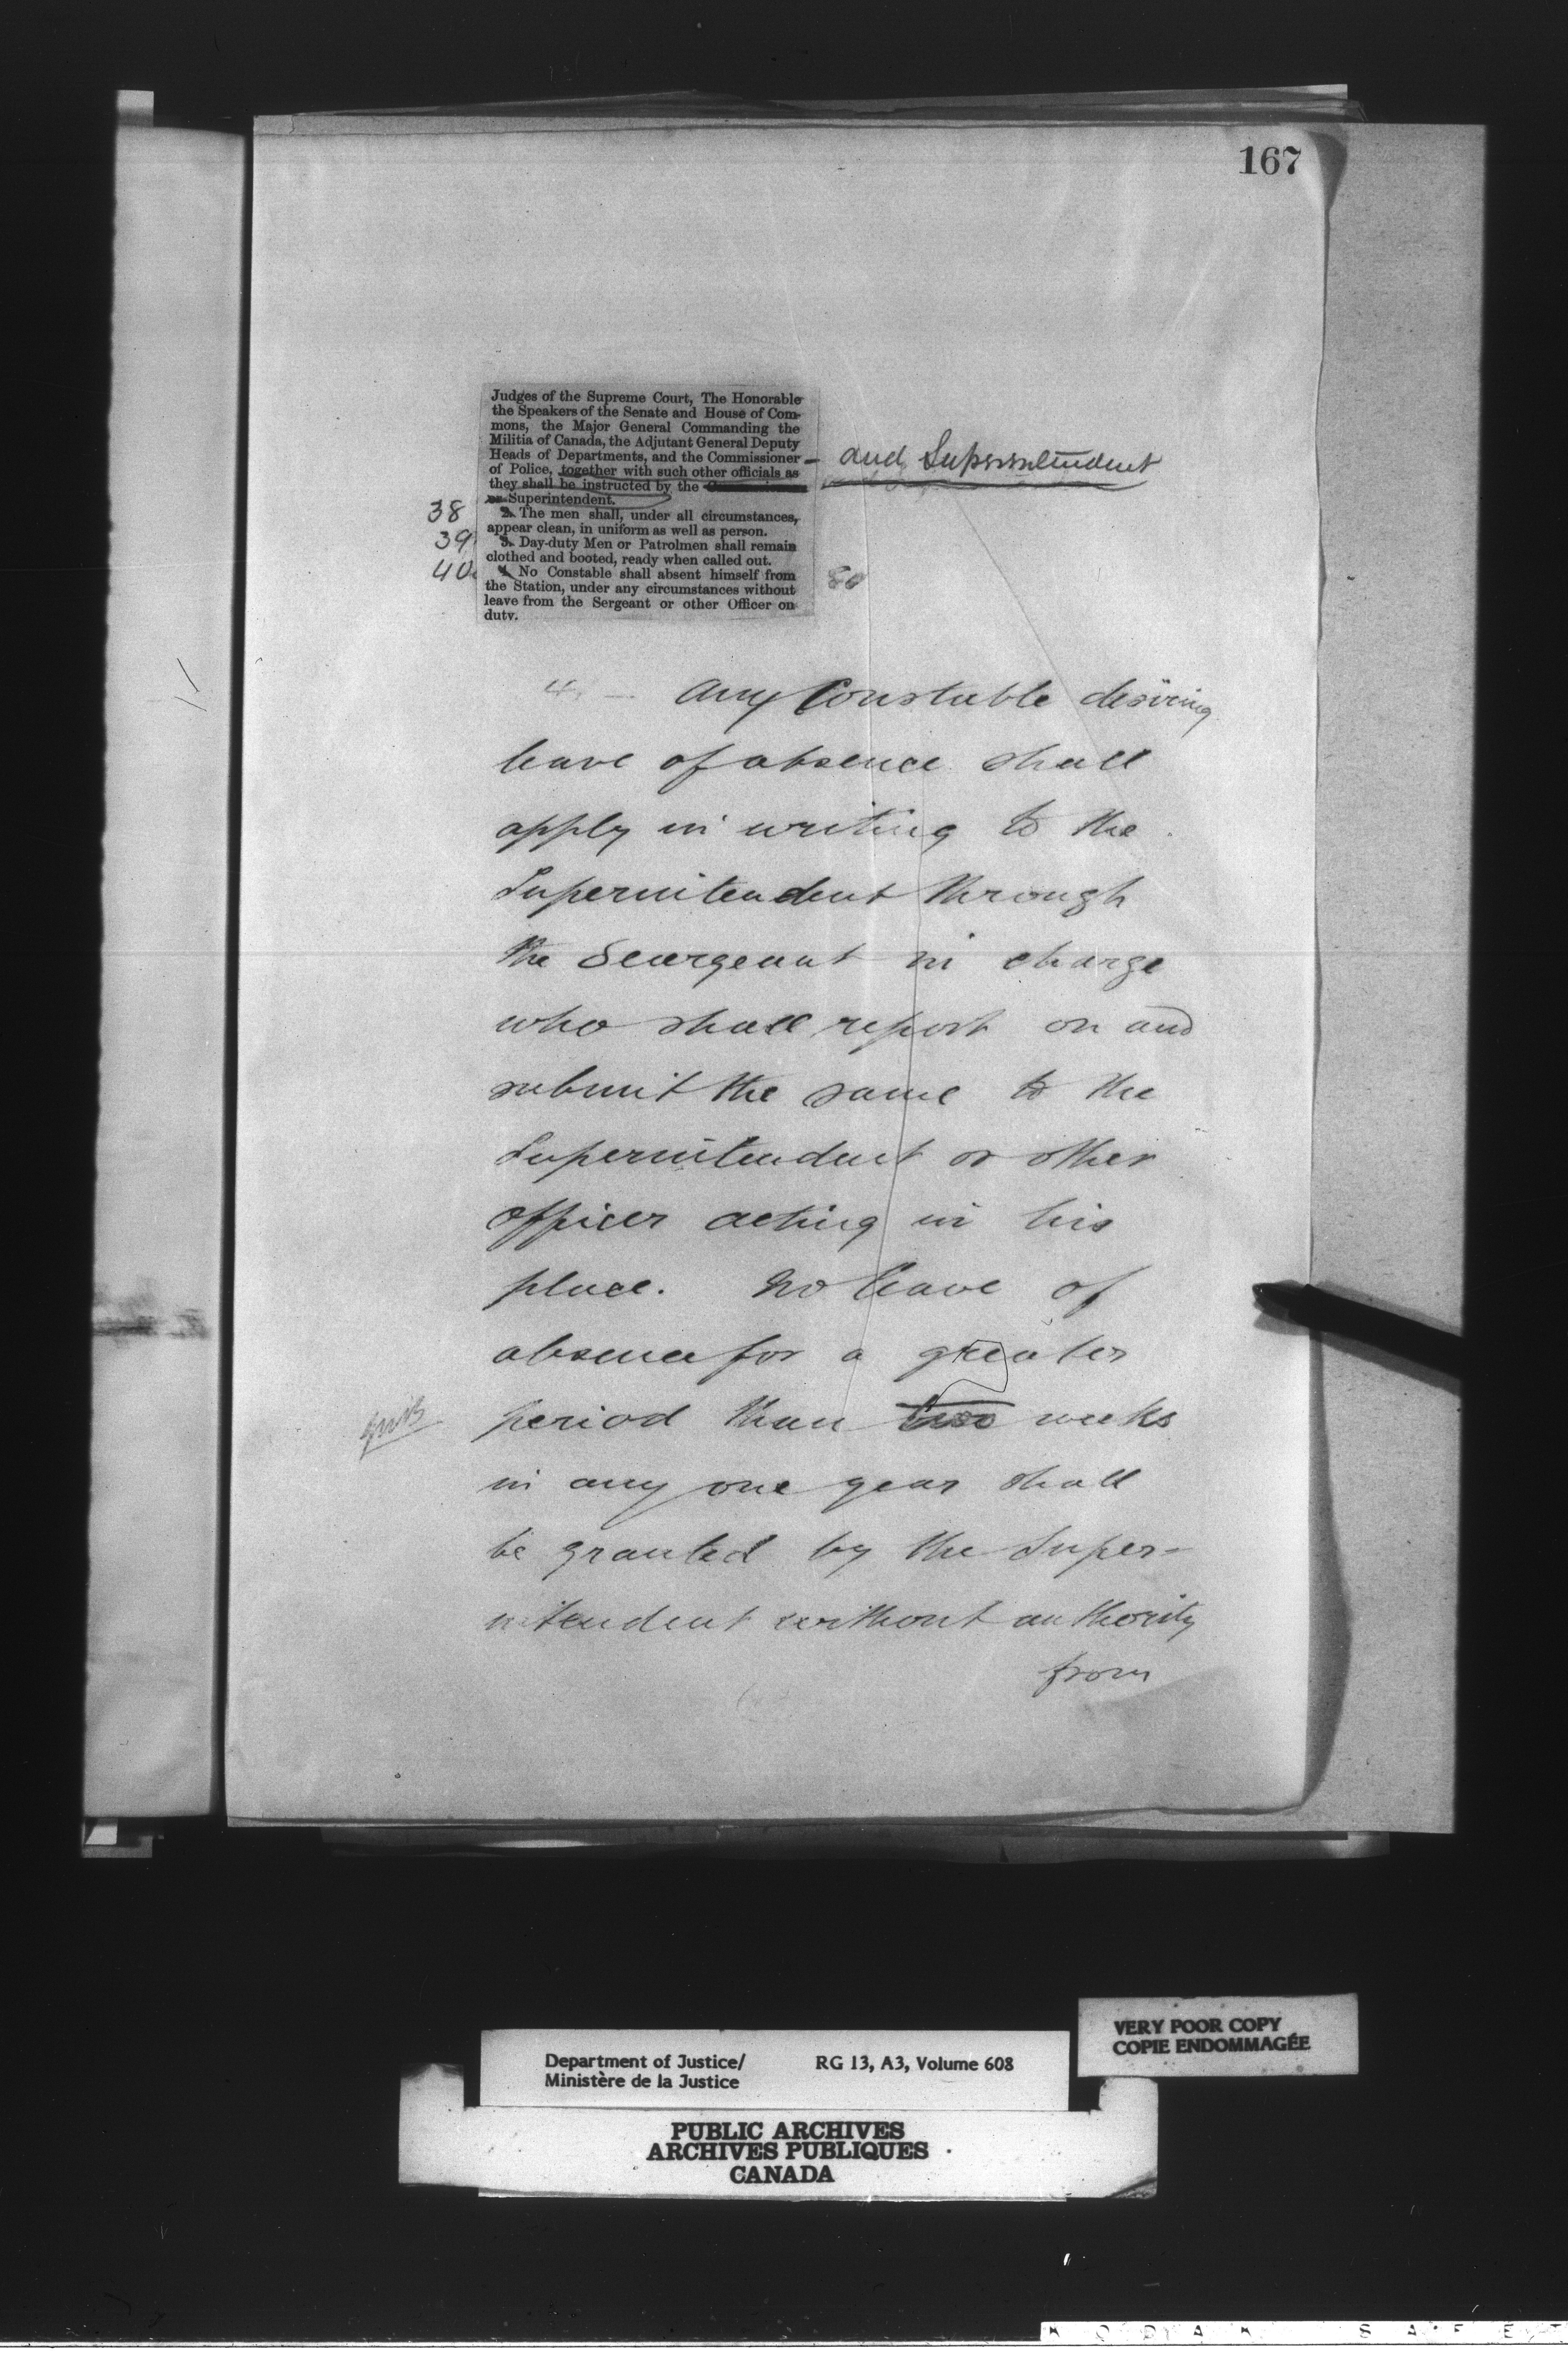 167
Judges of the Supreme Court, The Honorable
the Speakers of the Senate and House of Com-
mons, the Major General Commanding the
Militia of Canada, the Adjutant General Deputy
Heads of Departments, and the Commissioner
of Police, together with such other officials as
they shall be instructed by the
or Superintendent.
and Superintendent
38
2. The men shall, under all circumstances,
appear clean, in uniform as well as person.
39
3. Day-duty Men or Patrolmen shall remain
clothed and booted, ready when called out.
40
4. No Constable shall absent himself from
the Station, under any circumstances without
leave from the Sergeant or other Officer on
duty.
80
4. — Any Constable desiring
leave of absence shall
apply in writing to the
Superintendent through
the Seargeant in charge
who shall report on and
submit the same to the
Superintendent or other
officer acting in his
place. No leave of
absence for a greater
period than two weeks
in any one year shall
be granted by the Super-
intendent without authority
from
Department of Justice/
Ministère de la Justice
RG 13, A3, Volume 608
VERY POOR COPY
COPIE ENDOMMAGÉE
PUBLIC ARCHIVES
ARCHIVES PUBLIQUES
CANADA
KODAK SAFET